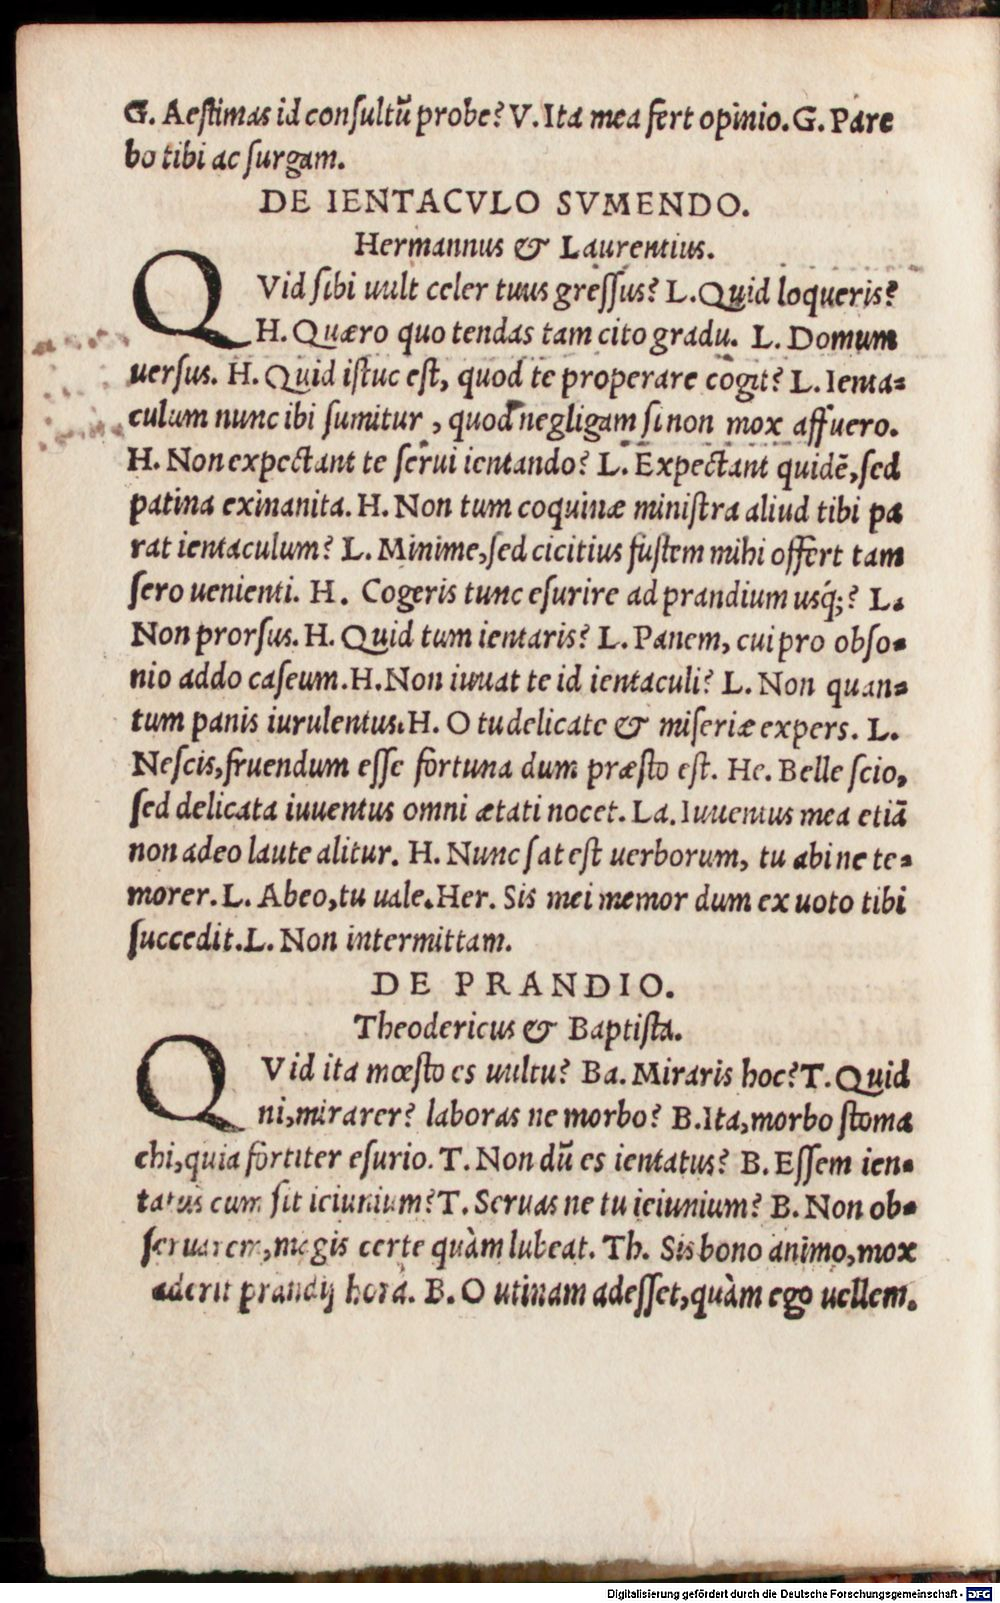 G. Aestimas id consultū probe? V. Ita mea fert opinio. G. Pare
bo tibi ac surgam.
DE IENTACVLO SVMENDO.
Hermannus & Laurentius.
QVid sibi uult celer tuus gressus? L. Quid loqueris?
H. Quæro quo tendas tam cito gradu. L. Domum
uersus. H. Quid istuc est, quod te properare cogit? L. Ienta-
culum nunc ibi sumitur, quod negligam si non mox affuero.
H. Non expectant te serui ientando? L. Expectant quidē, sed
patina exinanita. H. Non tum coquinæ ministra aliud tibi pa
rat ientaculum? L. Minime, sed cicitius fustem mihi offert tam
sero uenienti. H. Cogeris tunc esurire ad prandium usq́;? L.
Non prorsus. H. Quid tum ientaris? L. Panem, cui pro obso-
nio addo caseum. H. Non iuuat te id ientaculi? L. Non quan-
tum panis iurulentus. H. O tu delicate & miseriæ expers. L.
Nescis, fruendum esse fortuna dum præsto est. He. Belle scio,
sed delicata iuuentus omni ætati nocet. La. Iuuentus mea etiā
non adeo laute alitur. H. Nunc sat est uerborum, tu abi ne te-
morer. L. Abeo, tu uale. Her. Sis mei memor dum ex uoto tibi
succedit. L. Non intermittam.
DE PRANDIO.
Theodericus & Baptista.
QVid ita mœsto es uultu? Ba. Miraris hoc? T. Quid
ni, mirarer? laboras ne morbo? B. Ita, morbo stoma
chi, quia fortiter esurio. T. Non dū es ientatus? B. Essem ien-
tatus cum sit ieiunium? T. Seruas ne tu ieiunium? B. Non ob-
seruarem, magis certe quàm lubeat. Th. Sis bono animo, mox
aderit prandij hora. B. O utinam adesset, quàm ego uellem.
Digitalisierung gefördert durch die Deutsche Forschungsgemeinschaft - DFG